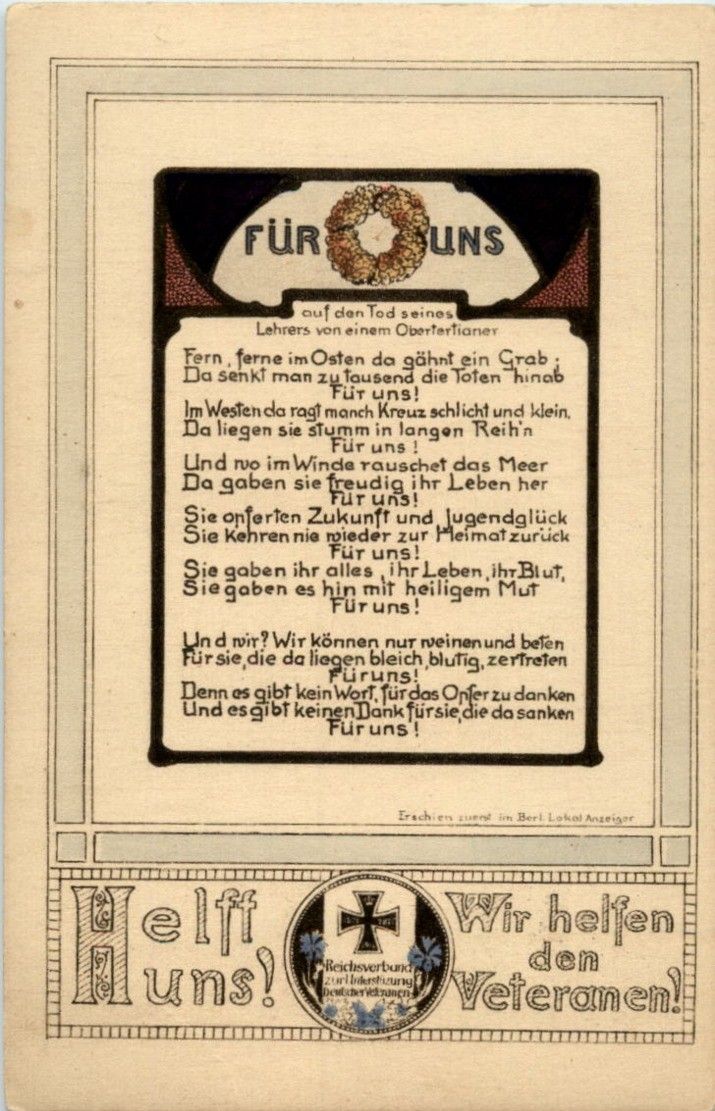 FÜR UNS
auf den Tod seines
Lehrers von einem Obertertianer
Fern, ferne im Osten da gähnt ein Grab;
Da senkt man zu tausend die Toten hinab
Für uns!
Im Westen da ragt manch Kreuz schlicht und klein,
Da liegen sie stumm in langen Reih'n
Für uns!
Und wo im Winde rauschet das Meer
Da gaben sie freudig ihr Leben her
Für uns!
Sie opferten Zukunft und Jugendglück
Sie kehren nie wieder zur Heimat zurück
Für uns!
Sie gaben ihr alles, ihr Leben, ihr Blut,
Sie gaben es hin mit heiligem Mut
Für uns!
Und wir? Wir können nur weinen und beten
Für sie, die da liegen bleich, blutig, zertreten
Für uns!
Denn es gibt kein Wort, für das Opfer zu danken
Und es gibt keinen Dank für sie, die da sanken
Für uns!
Erschien zuerst im Berl. Lokal Anzeiger
Helft uns!
Reichsverband
zur Unterstüzung
Deutscher Veteranen
Wir helfen
den
Veteranen!